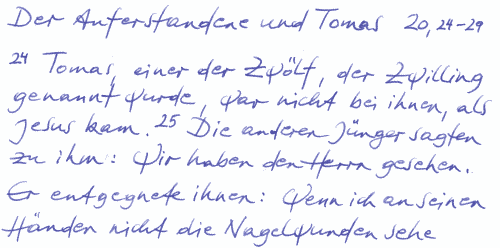 Der Auferstandene und Tomas 20,24-29
24 Tomas, einer der Zwölf, der Zwilling
genannt wurde, war nicht bei ihnen, als
Jesus kam. 25 Die anderen Jünger sagten
zu ihm: Wir haben den Herrn gesehen.
Er entgegnete ihnen: Wenn ich an seinen
Händen nicht die Nagelwunden sehe